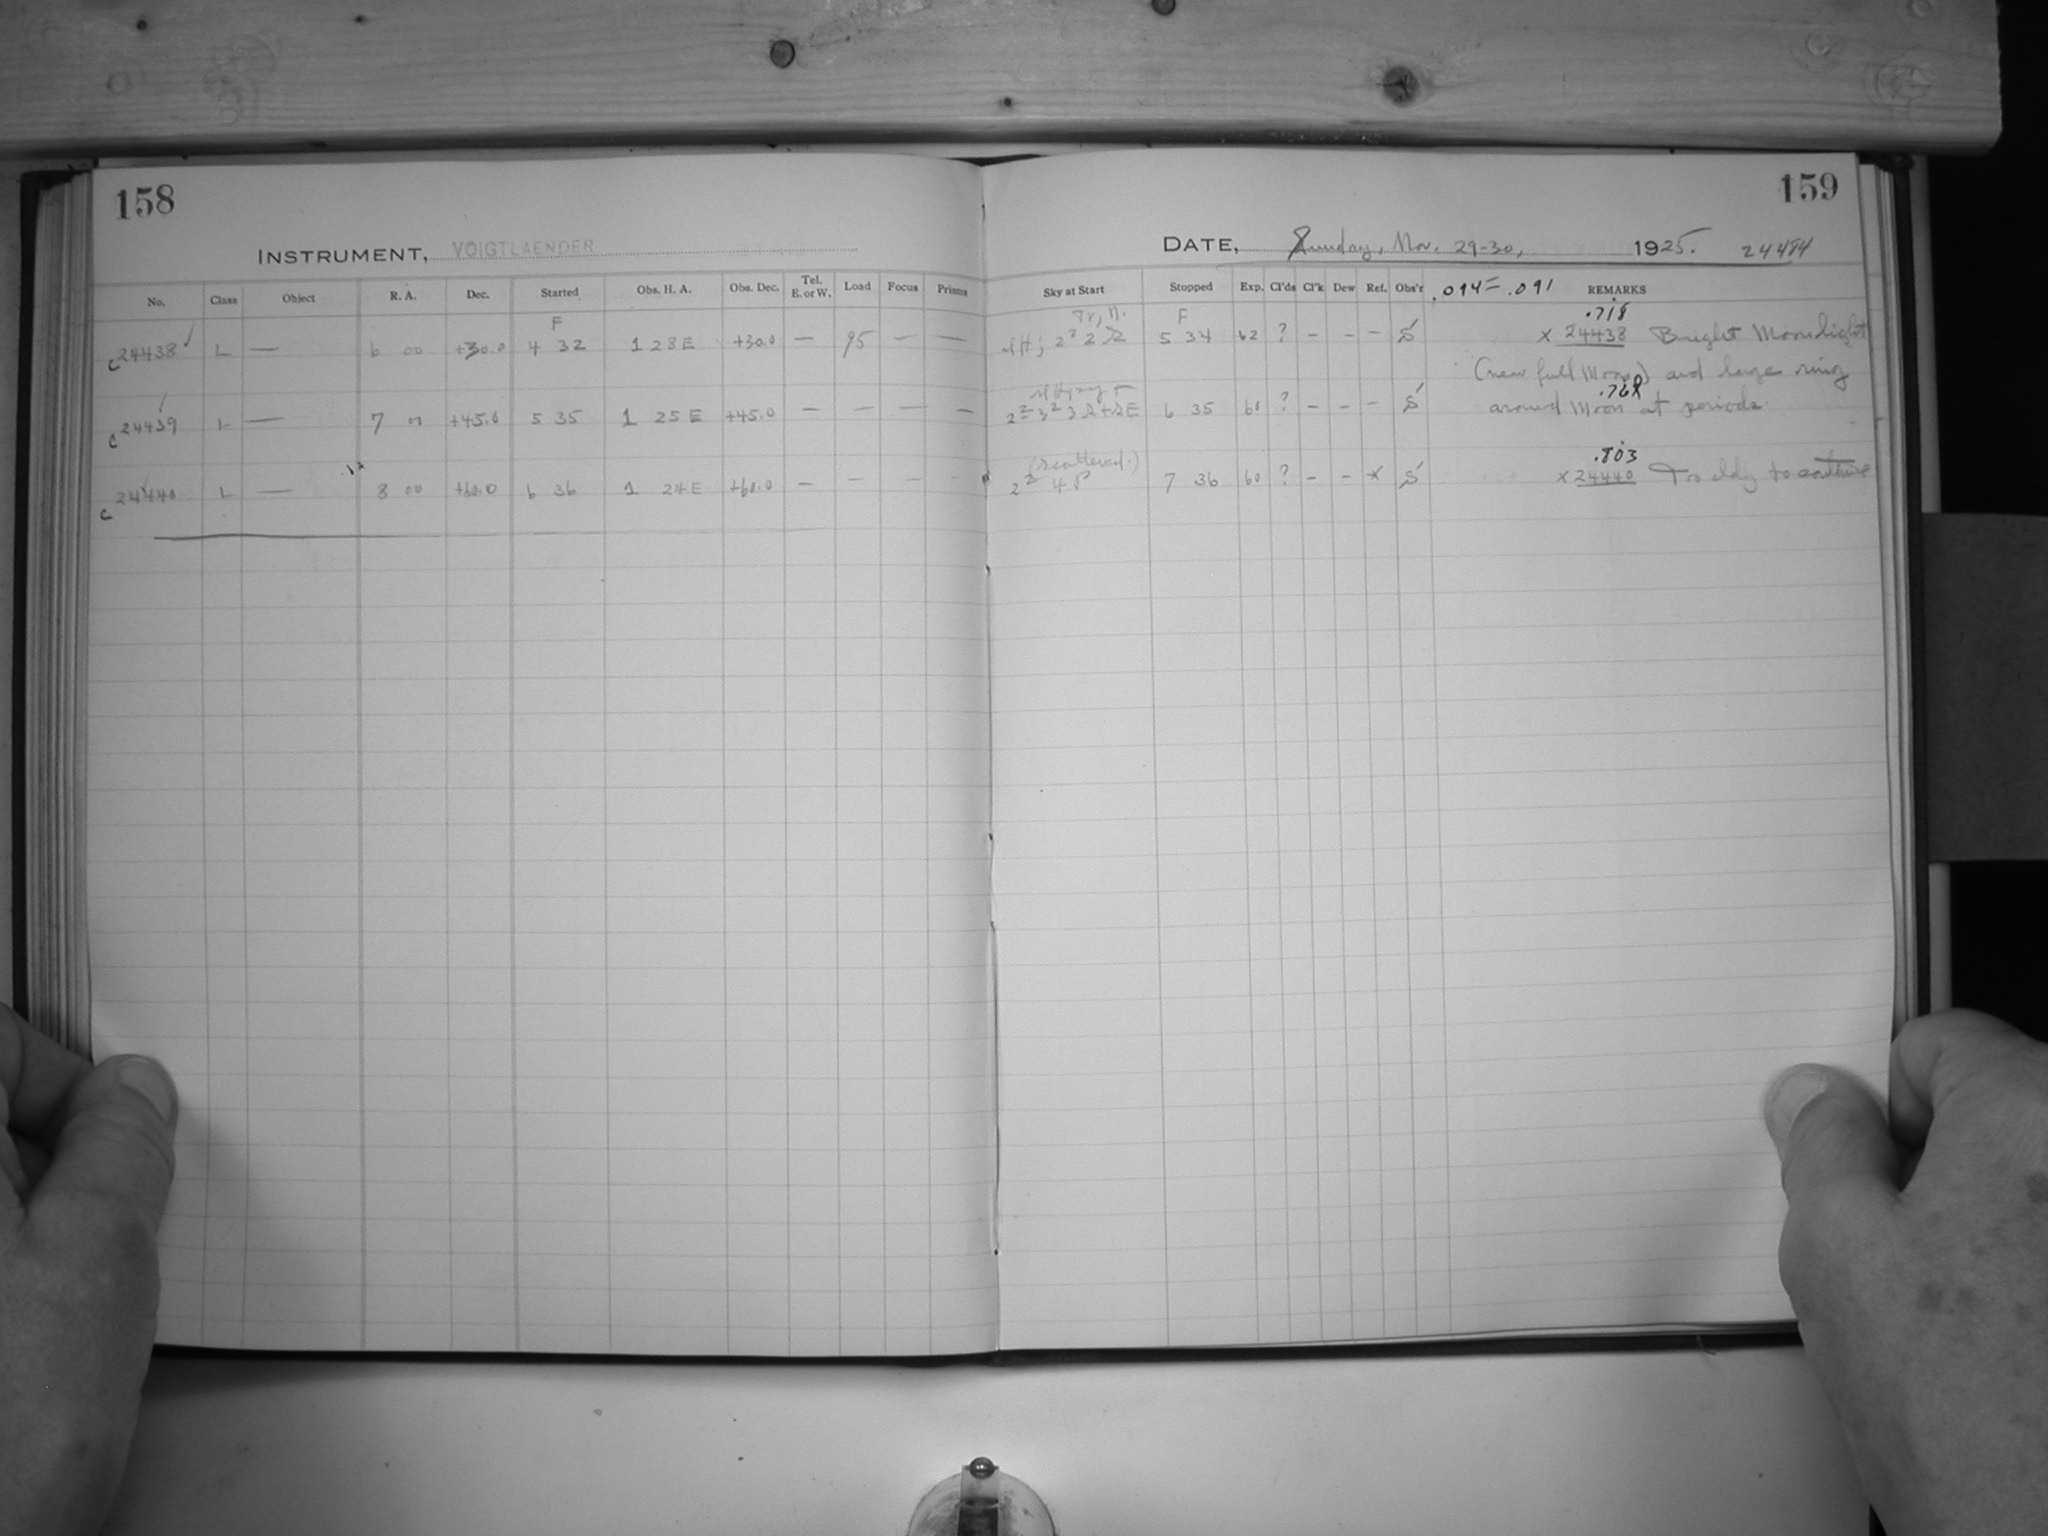 158
159
INSTRUMENT, VOIGTLAENDER
DATE, Sunday, Nov. 29-30, 1925. 24484
No. Class Object R. A. Dec. Started Obs. H. A. Obs. Dec. Tel. E. or W. Load Focus Prisms Sky at Start Stopped Exp. Cl'ds Cl'k Dew Ref. Obs'r .094 = .091 REMARKS
F F .718
c 24438 L — 6 00 +30.0 4 32 1 28 E +30.0 — 95 — — 5 34 62 ? – – – S x 24438 Bright Moonlight
(near full Moon) and large ring
.768
c 24439 L — 7 00 +45.0 5 35 1 25 E +45.0 — — — — 6 35 60 ? – – – S around Moon at periods.
(scattered.) .803
c 24440 L — 8 00 +60.0 6 36 1 24 E +60.0 — — — 7 36 60 ? – – x S x 24440 Too cldy to continue